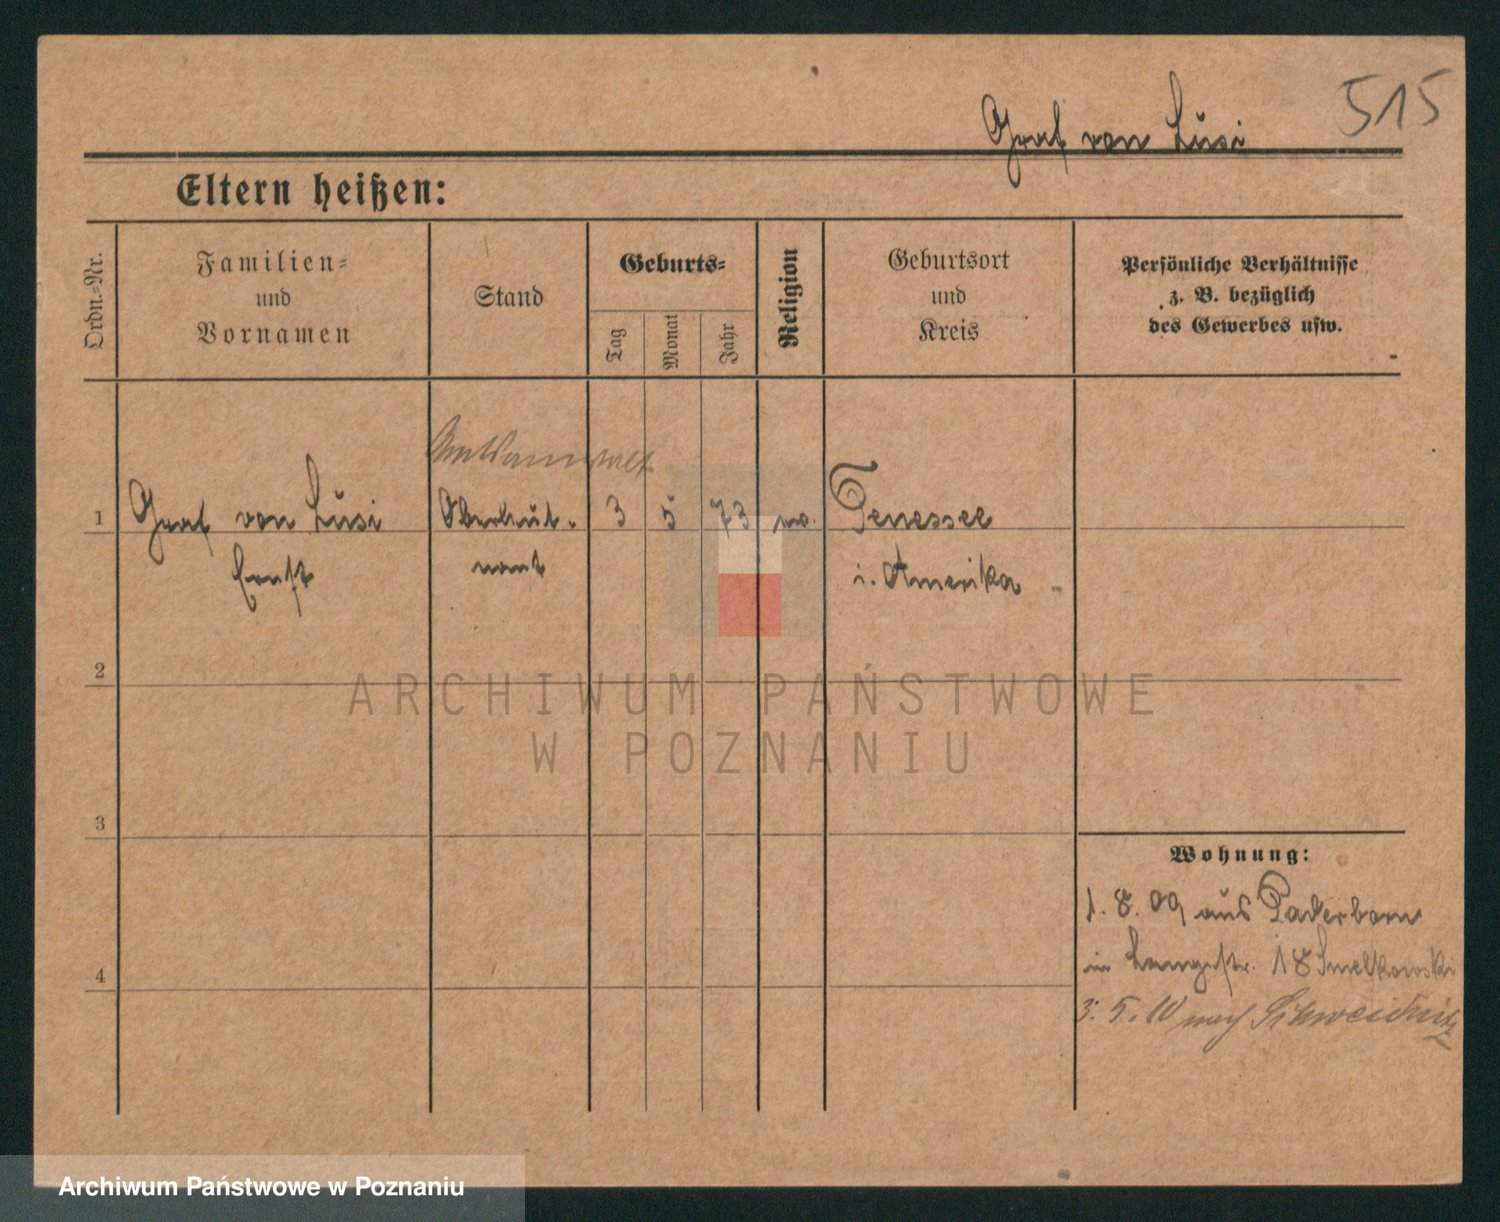 515
Graf von Lüsi
Eltern heißen:
Ordn.-Nr.
Familien-
und
Vornamen
Stand
Geburts-
Tag
Monat
Jahr
Religion
Geburtsort
und
Kreis
Persönliche Verhältnisse
z. B. bezüglich
des Gewerbes usw.
1
Graf von Lüsi
Ernst
Oberleut-
nant
3
5
73
Tenessee
i. Amerika
2
3
4
Wohnung:
1. 8. 09 aus Paderborn
in Langestr. 18 Smelkowski
3. 5. 10 nach Schweidnitz
ARCHIWUM PAŃSTWOWE
W POZNANIU
Archiwum Państwowe w Poznaniu